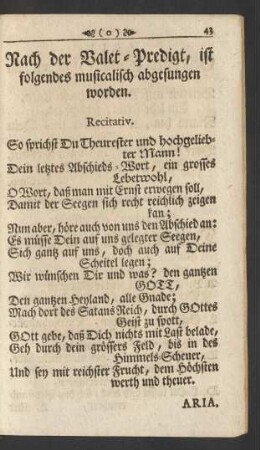 ( o ) 43
Nach der Valet-Predigt, ist
folgendes musicalisch abgesungen
worden.
Recitativ.
So sprichst Du Theurester und hochgelieb-
ter Mann!
Dein letztes Abschieds-Wort, ein grosses
Leberwohl,
O Wort, daß man mit Ernst erwegen soll,
Damit der Seegen sich recht reichlich zeigen
kan;
Nun aber, höre auch von uns den Abschied an:
Es müsse Dein auf uns gelegter Seegen,
Sich gantz auf uns, doch auch auf Deine
Scheitel legen;
Wir wünschen Dir und was? den gantzen
GOTT,
Den gantzen Heyland, alle Gnade;
Mach dort des Satans Reich, durch GOttes
Geist zu spott,
GOtt gebe, daß Dich nichts mit Last belade,
Geh durch dein grössers Feld, bis in des
Himmels-Scheuer,
Und sey mit reichster Frucht, dem Höchsten
werth und theuer.
ARIA.